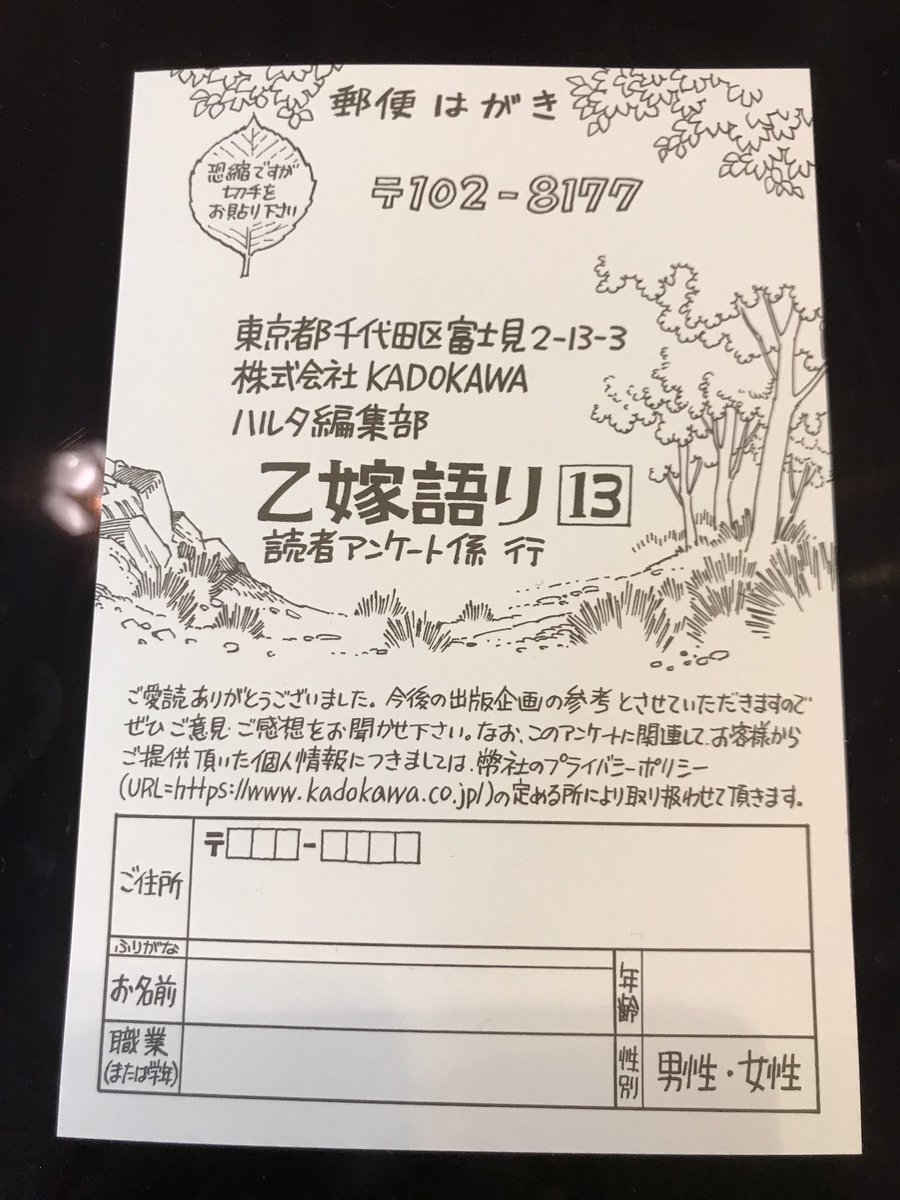 郵便はがき
恐縮ですが
切手を
お貼り下さい
〒102-8177
東京都千代田区富士見2-13-3
株式会社KADOKAWA
ハルタ編集部
乙嫁語り 13
読者アンケート係 行
ご愛読ありがとうございました。今後の出版企画の参考とさせていただきますので
ぜひご意見・ご感想をお聞かせ下さい。なお、このアンケートに関連して、お客様から
ご提供頂いた個人情報につきましては、弊社のプライバシーポリシー
(URL=https://www.kadokawa.co.jp/)の定める所により取り扱わせて頂きます。
ご住所
〒 -
ふりがな
お名前
年齢
職業
(または学年)
性別
男性・女性